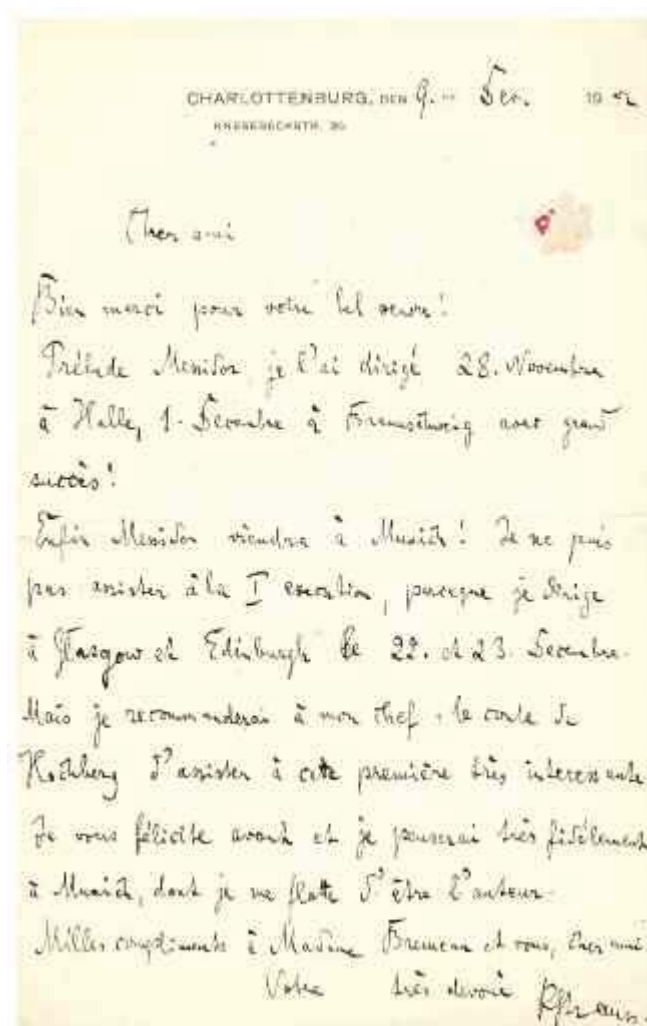 CHARLOTTENBURG, DEN 9. Dec. 190
KNESEBECKSTR. 30
Cher ami
Bien merci pour votre bel œuvre!
Prélude Messidor je l'ai dirigé 28. Novembre
à Halle, 1. Decembre à avec grand
succès!
Enfin Messidor viendra à Munich! Je ne puis
pas assister à la I execution, parceque je dirige
à Glasgow et Edinburgh le 22. et 23. Decembre.
Mais je recommanderai à mon chef le conte de
Hochberg d'assister à cette première très interessante
Je vous félicite avant et je penserai très fidèlement
à Munich, dont je me flatte d'être l'auteur.
Milles compliments à Madame et vous, cher ami
Votre très devoué RStrauss.